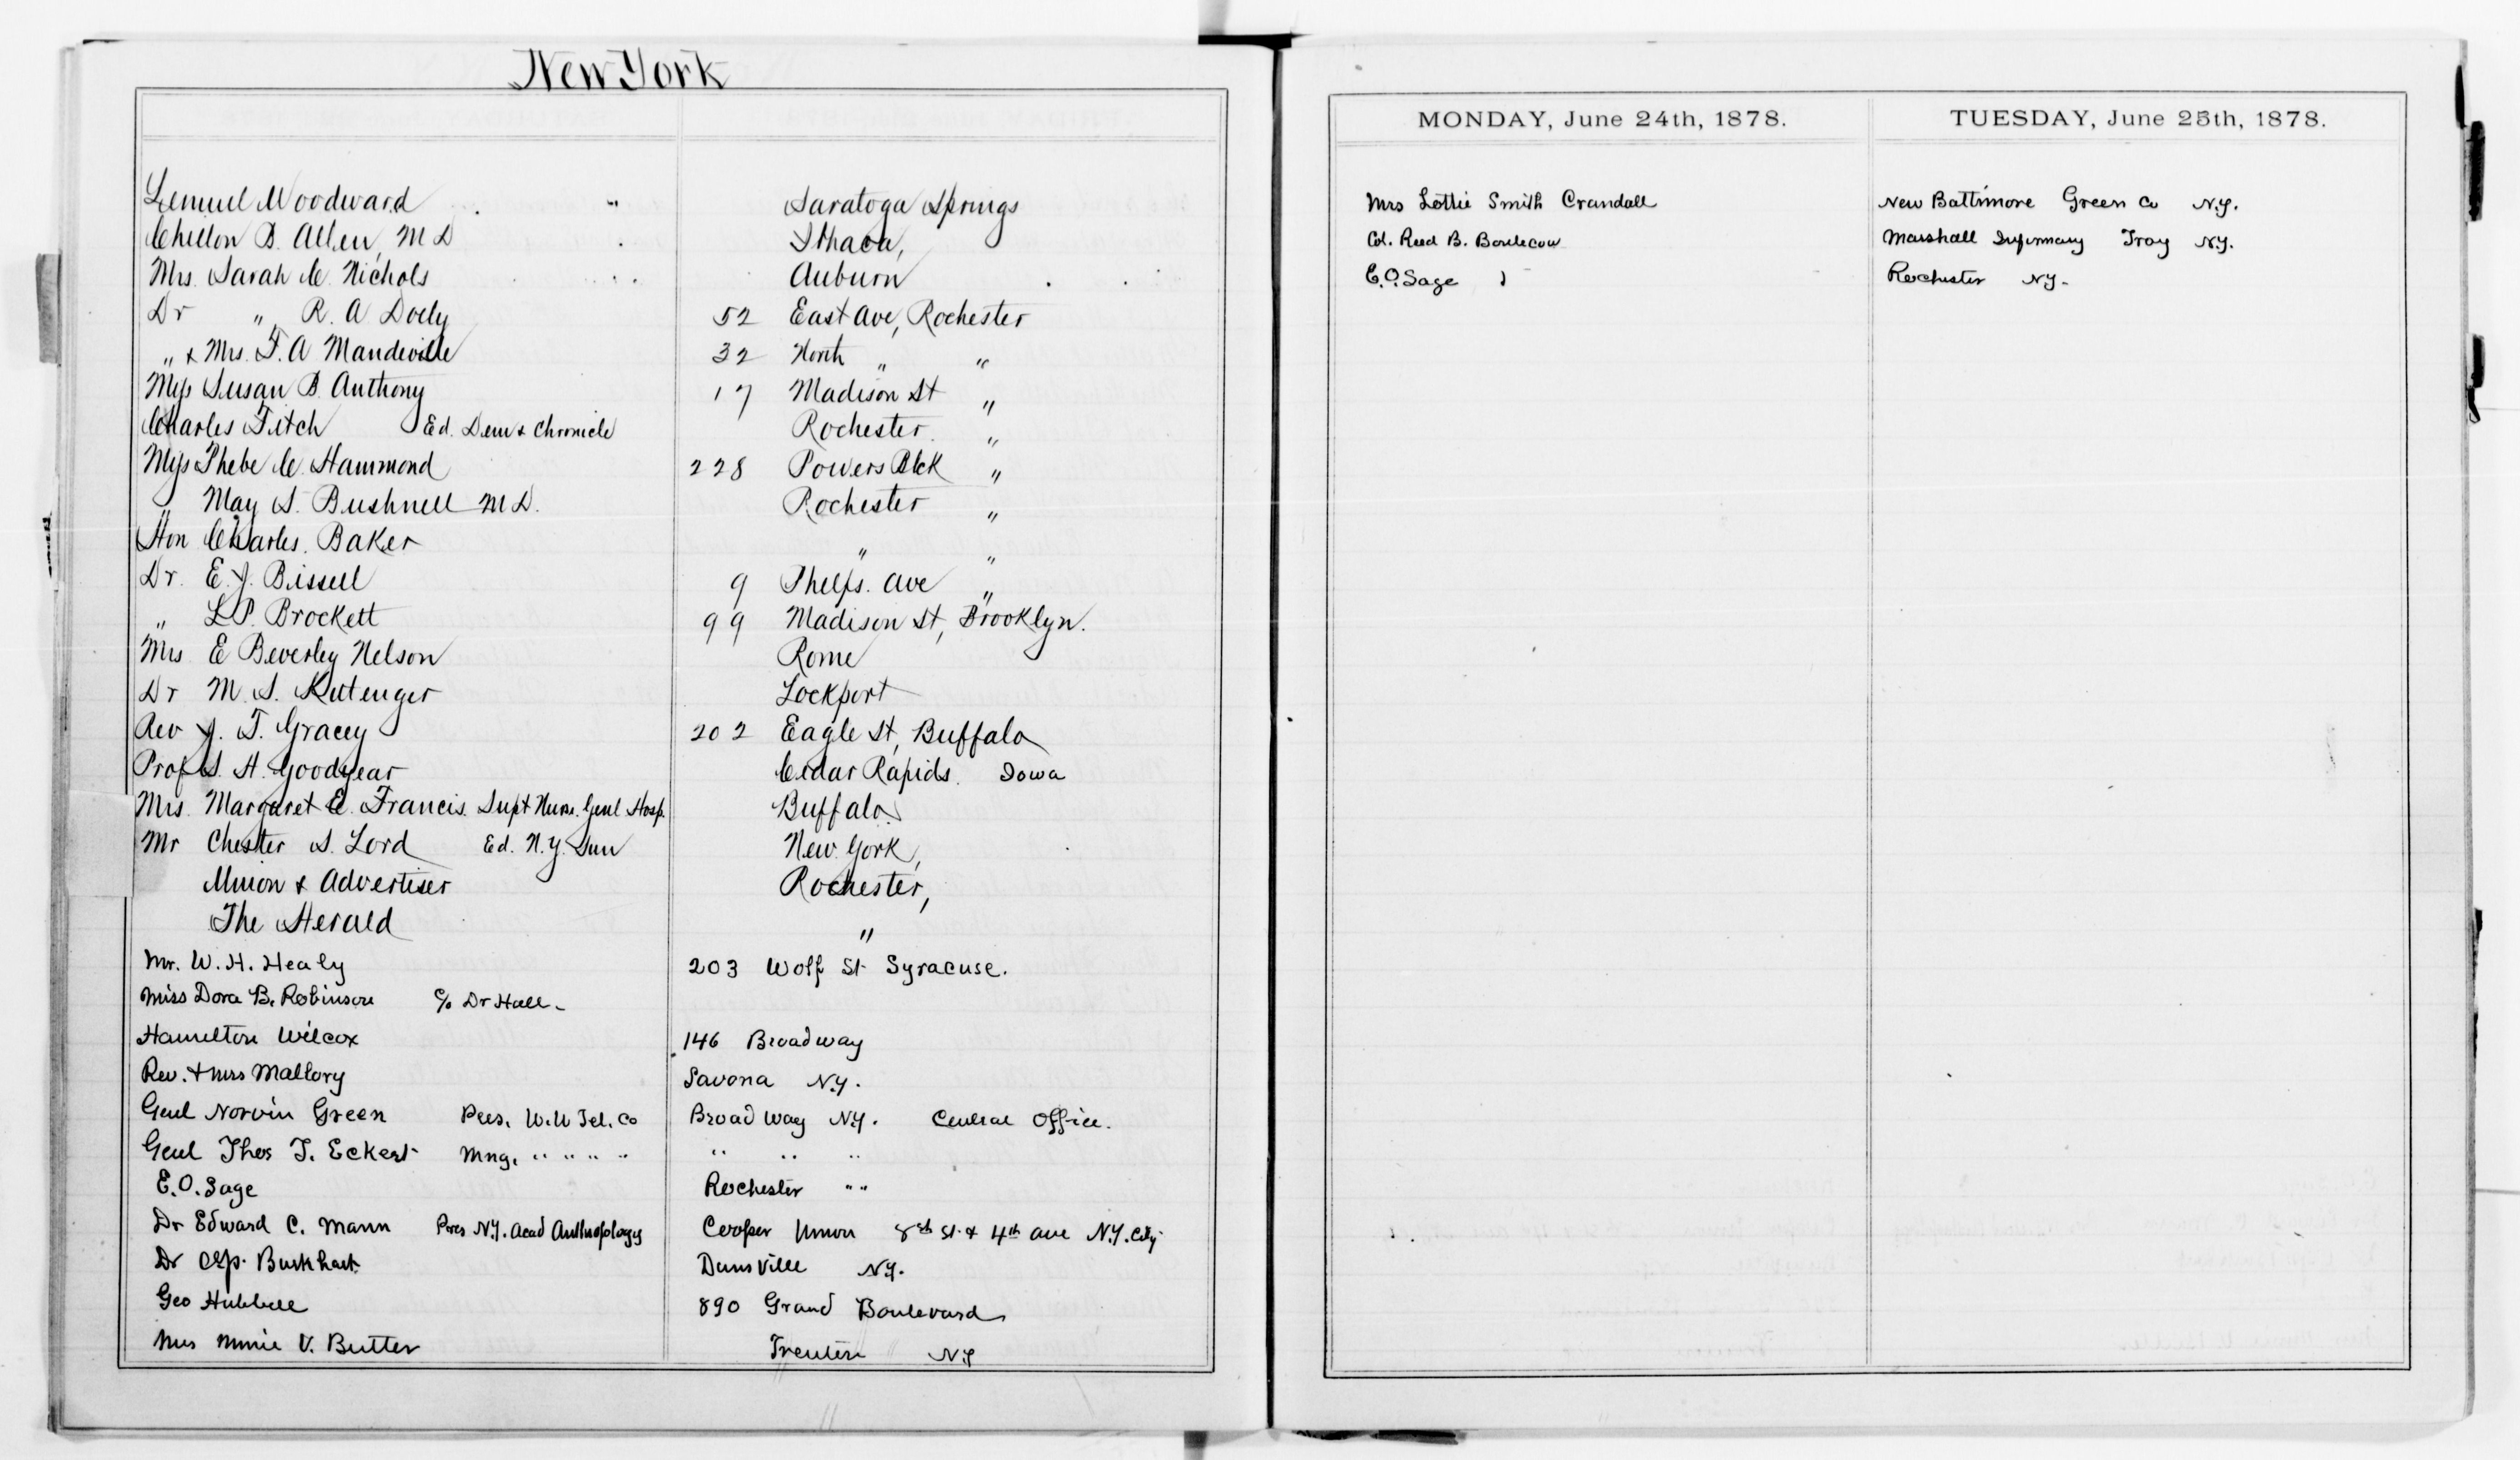 New York
Lemuel Woodward " Saratoga Springs
Chellon B. Allen, M D Ithaca,
Mrs. Sarah C. Nichols Auburn
Dr " R. A. Dolly 52 East Ave, Rochester
" & Mrs. F. A Mandeville 32 North " "
Miss Susan B. Anthony 17 Madison St "
Charles Fitch Ed. Dem & Chronicle Rochester. "
Miss Phebe C. Hammond 228 Powers Blck "
" May S. Bushnell M D. Rochester "
Hon Charles. Baker " "
Dr. E. J. Bissell 9 Phelps. Ave "
" L P. Brockett 99 Madison St, Brooklyn.
Mrs E Beverley Nelson Rome
Dr M. S. Kittenger Lockport
Rev J. T. Gracey 202 Eagle St, Buffalo
Prof S. H. Goodyear Cedar Rapids. Iowa
Mrs. Margaret E. Francis. Supt Nurse. Genl Hosp. Buffalo.
Mr Chester S. Lord Ed. N.Y. Sun New York,
Union & Advertiser Rochester,
The Herald "
Mr. W. H. Healy 203 Wolf St Syracuse.
Miss Dora B. Robinson c/o Dr Hall-
Hamilton Wilcox 146 Broadway
Rev. & Mrs Mallory Savona N.Y.
Genl Norvin Green Pres. W. U Tel. Co Broadway N.Y. Central Office.
Genl Thos T. Eckert Mng. " " " " " " "
E. O. Sage Rochester " "
Dr Edward C. Mann Pres N.Y. Acad Anthropology Cooper Union 8th St. & 4th ave N.Y. City
Dr Burkhart Dansville N.Y.
Geo Hubbell 890 Grand Boulevard
Mrs Minie V. Butter Trenton NY
MONDAY, June 24th, 1878. TUESDAY, June 25th, 1878.
Mrs Lottie Smith Crandall New Baltimore Green Co N.Y.
Col. Reed B. Marshall Infirmary Troy N.Y.
E. O. Sage Rochester N.Y.